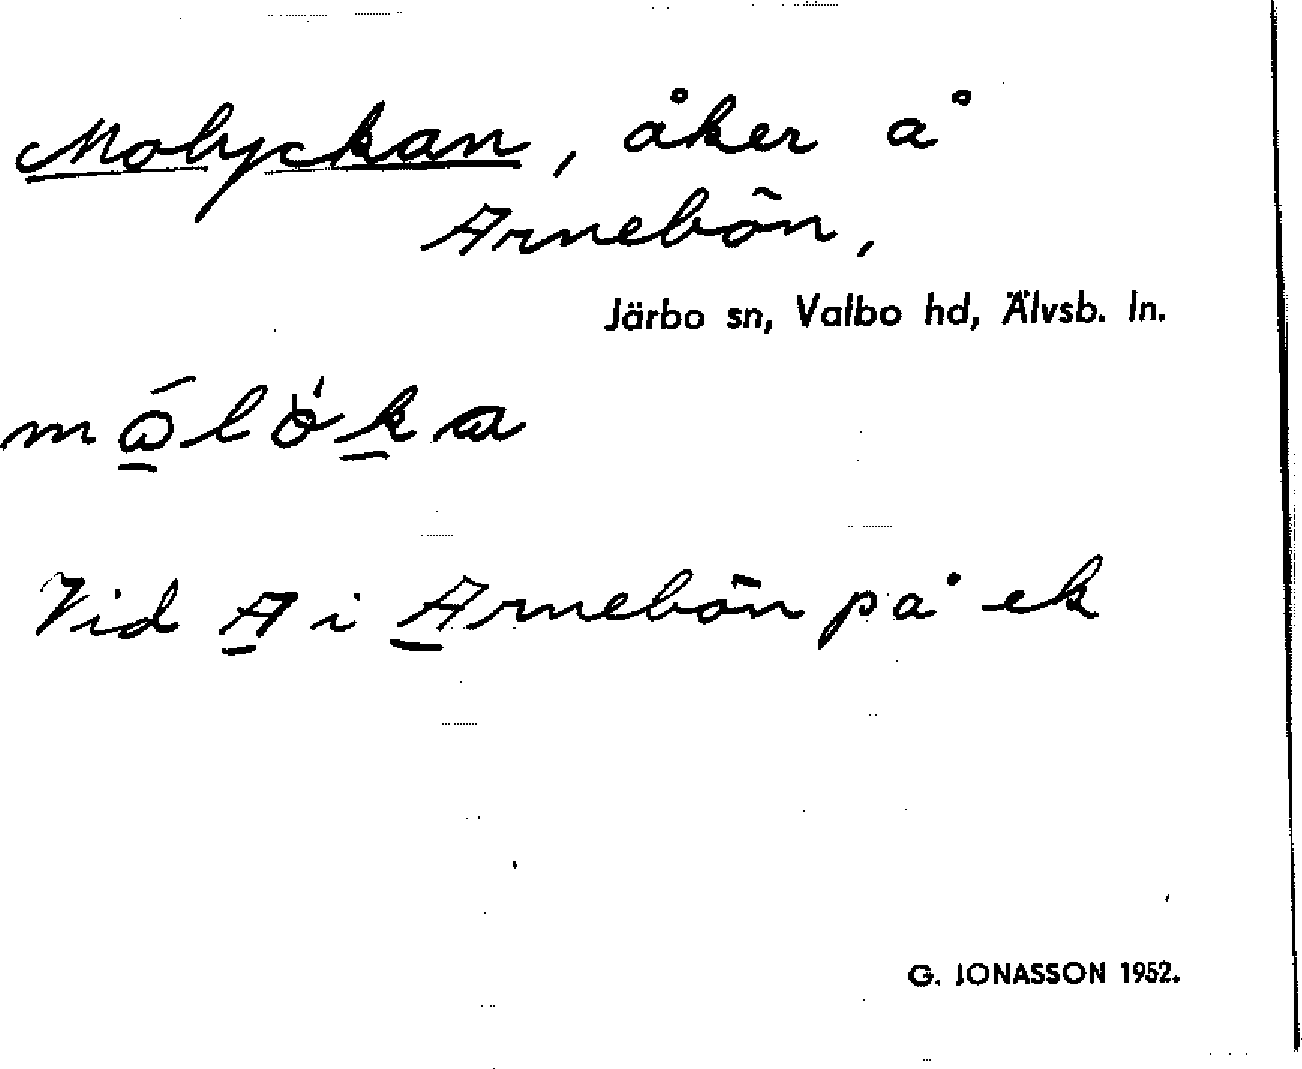 Molyckan, åker å
Arnebön,
Järbo sn, Valbo hd, Älvsb. ln.
Vid A i Arnebön på ek
G. JONASSON 1952.